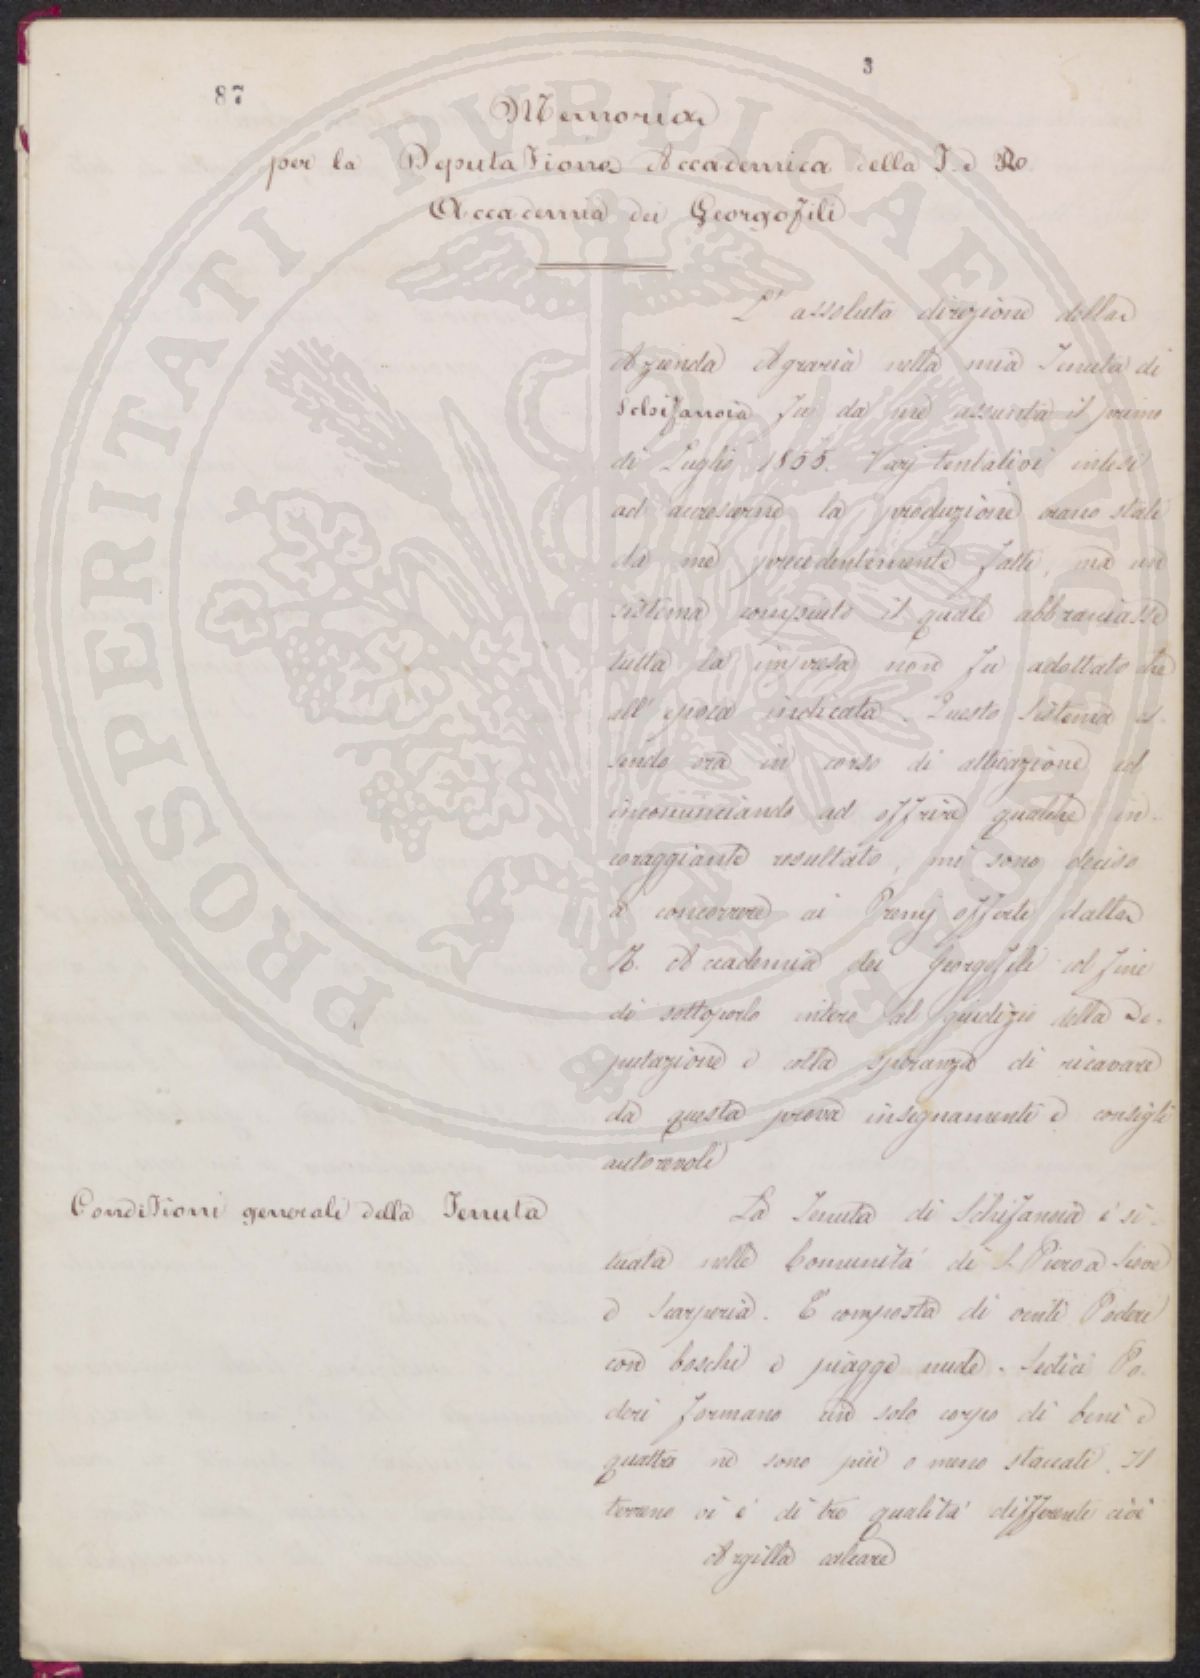 87
3
Memoria
per la Deputazione Accademica della I. e R.
Accademia dei Georgofili
L' assoluta direzione della
Azienda Agraria nella mia Tenuta di
Schifanoia fu da me assunta il primo
di Luglio 1855. Varj tentativi intesi
ad accrescerne la produzione erano stati
da me precedentemente fatti, ma un
sistema compiuto il quale abbracciasse
tutta la impresa non fu adottato che
all' epoca indicata. Questo sistema es-
sendo ora in corso di attuazione ed
incominciando ad offrire qualche in-
coraggiante resultato, mi sono deciso
a concorrere ai Premj offerti dalla
R. Accademia dei Georgofili col fine
di sottoporlo intero al giudizio della De-
putazione e colla speranza di ricavare
da questa prova insegnamenti e consigli
autorevoli
Condizioni generali della Tenuta
La Tenuta di Schifanoia è si-
tuata nelle Comunità di S. Piero a Sieve
e Scarperia. È composta di venti Poderi
con boschi e piagge nude. Sedici Po-
deri formano un solo corpo di beni e
quattro ne sono più o meno staccati. Il
terreno vi è di tre qualità differenti cioè
Argilla calcare
PROSPERITATI PUBLICAE AUGENDAE